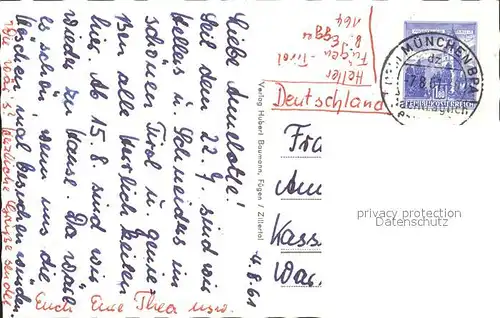 Liebe Annelotse!
Seit dem 22.7. sind wir
Hellers u Schneiders im
schönen Tirol u. genie
ßen alle herrlich Zeiten
hier. Ab 15.8. sind wir
wieder zu Hause. Da wär
es schön, wenn uns die
mal besuchen würden
herzliche Grüße senden
Euch Eure Thea usw.
4.8.61
Verlag Hubert Baumann, Fügen / Zillertal
Heller
Fügen - Tirol
164
Deutschland
MÜNCHEN
REPUBLIK ÖSTERREICH
Fra
Ann
Kass
privacy protection
Datenschutz